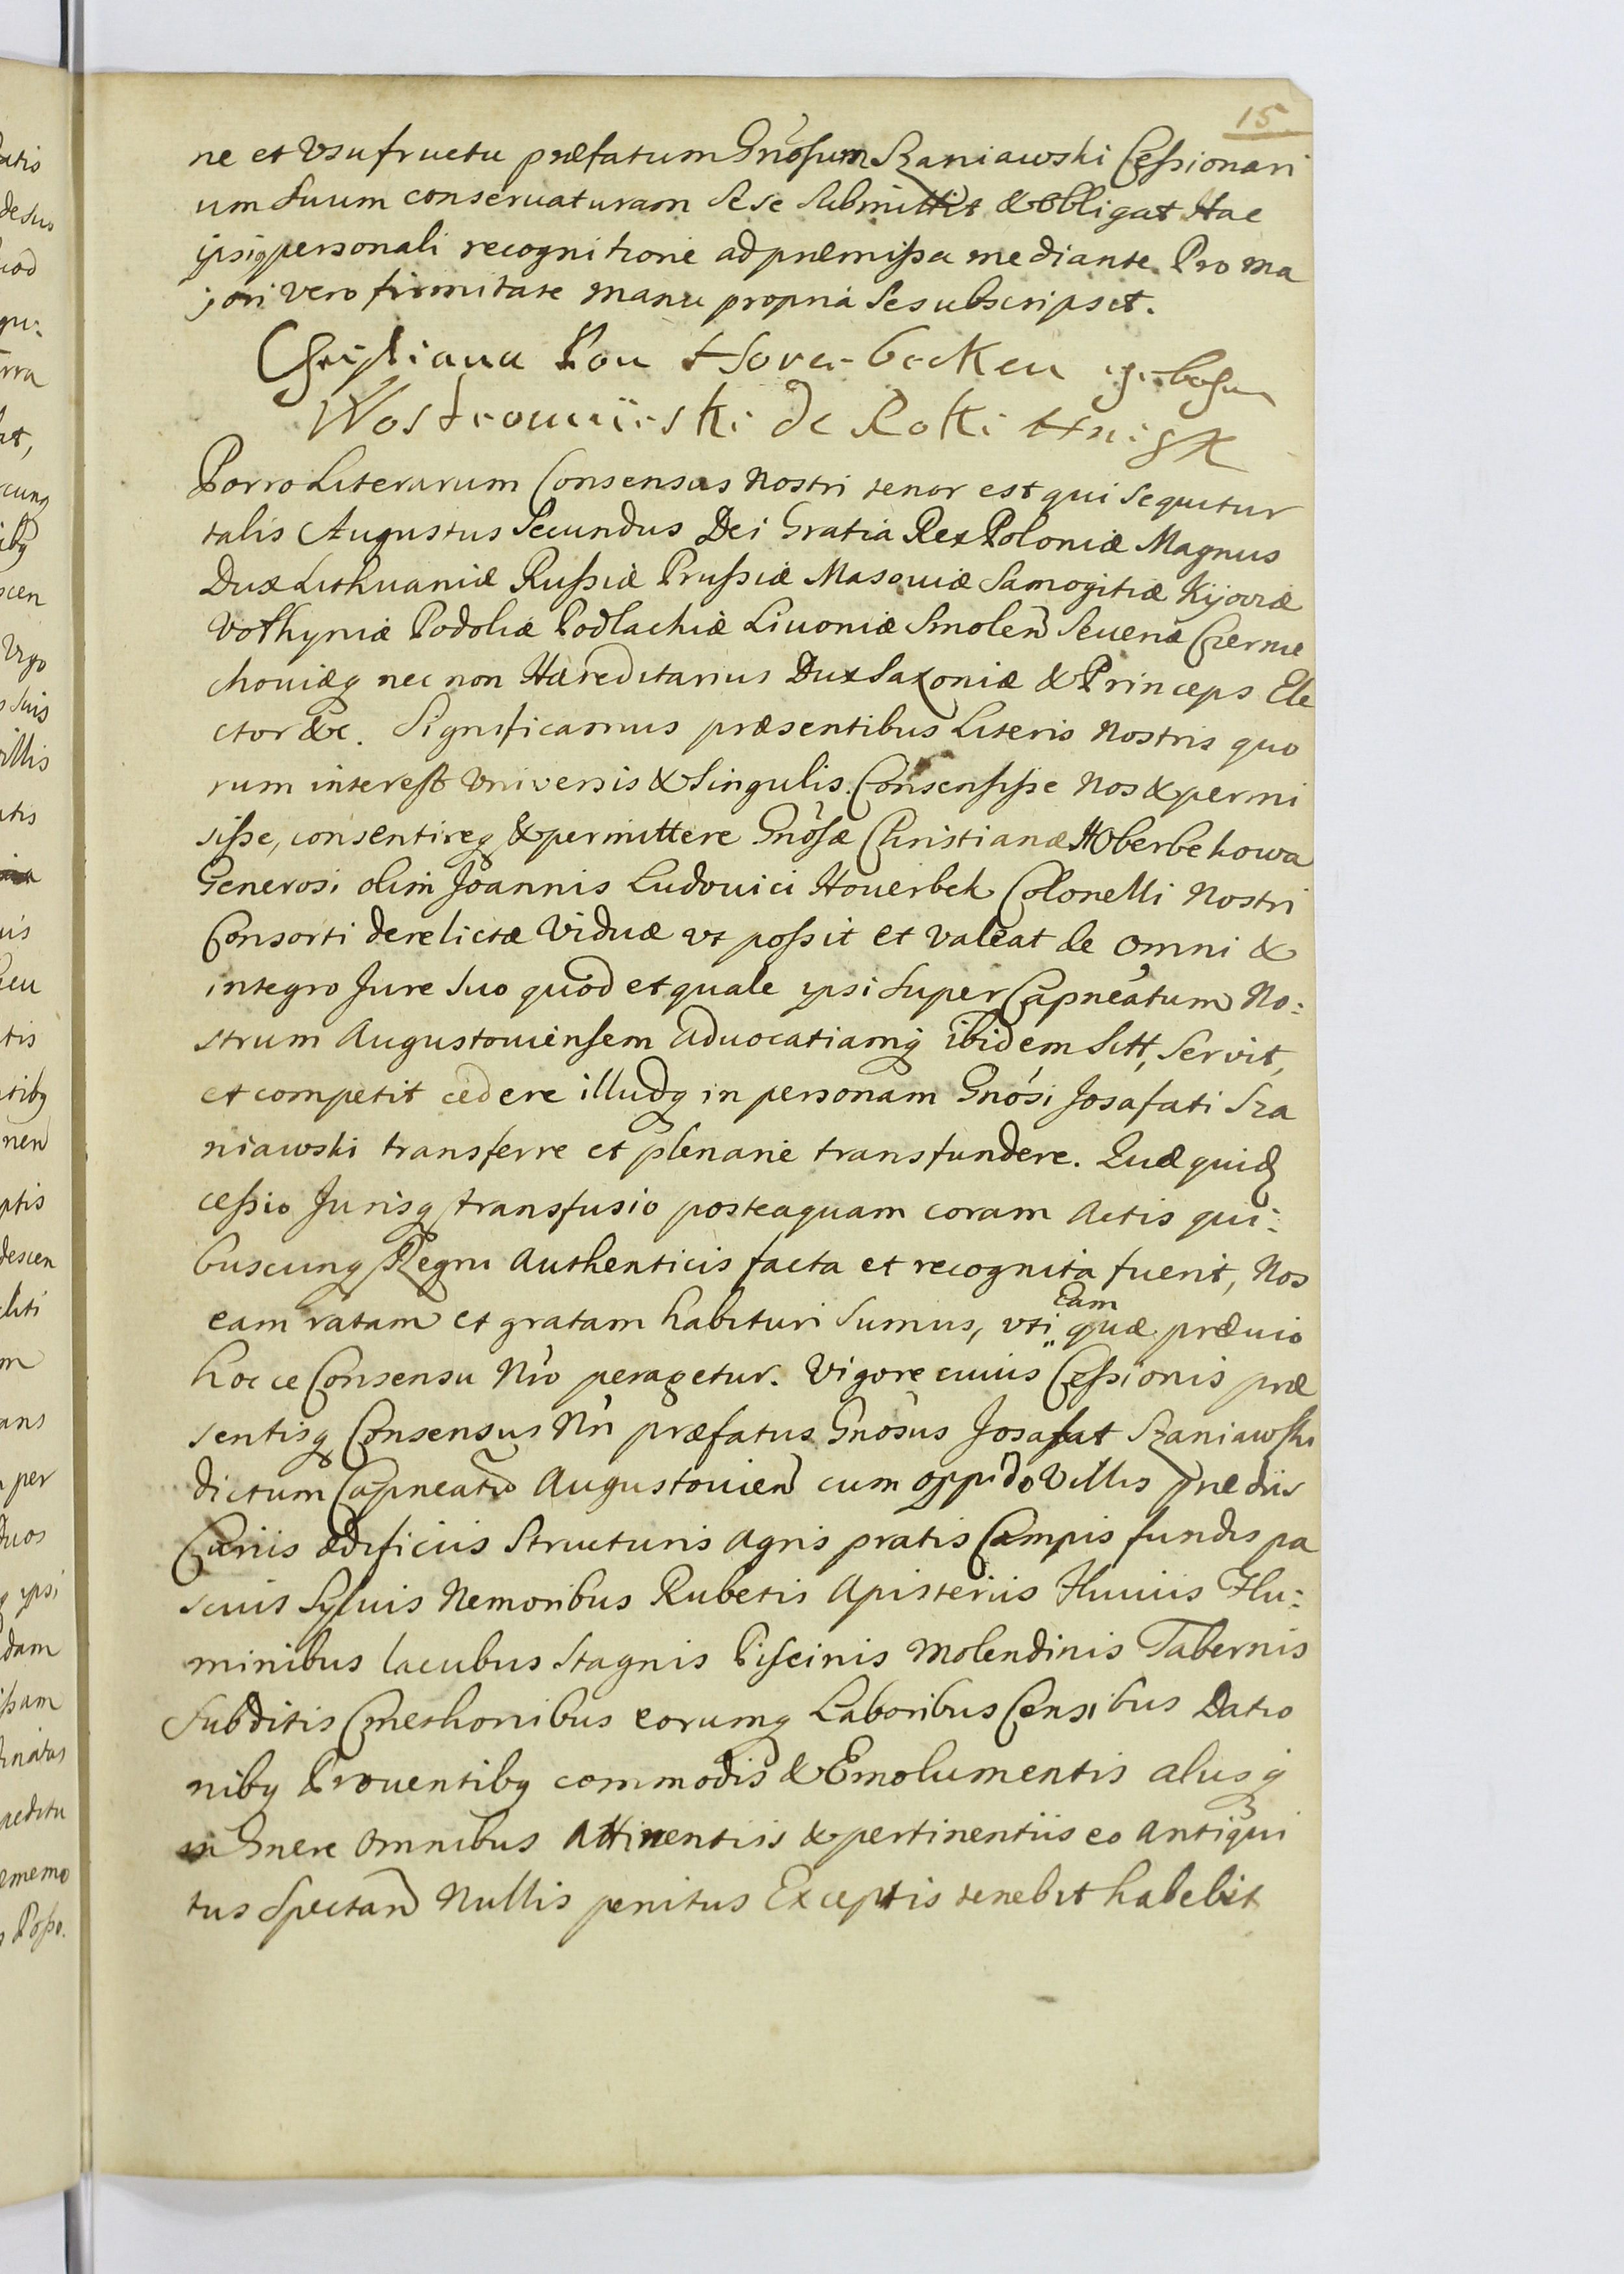 15
ne et Vsufructu præfatum Gnosum Szaniawski Cessionari
um Suum conseruaturam Sese Submittit & obligat Hac
ipsiq personali recognitione ad præmissa mediante. Pro ma
jori Vero firmitate manu propria Se subscripsit.
Christiana Von Hover-becken
de Rokit
Porro Literarum Consensus Nostri tenor est qui Sequitur
talis Augustus Secundus Dei Gratia Rex Poloniæ Magnus
Dux Lithuaniæ Russiæ Prussiæ Masouiæ Samogitiæ Kijoviæ
Volhyniæ Podoliæ Podlachiæ Liuoniæ Smolen Seueriæ Czernie
chouiæq nec non Hæreditarius Dux Saxoniæ & Princeps Ele
ctor &c. Significamus præsentibus Literis Nostris quo
rum interest Vniversis & Singulis. Consensisse Nos & permi
sisse, consentireq & permittere Gnosæ Christianæ Hoberbekowa
Generosi olim Joannis Ludouici Houerbek Colonelli Nostri
Consorti derelictæ Viduæ vt possit et valeat de omni &
integro Jure Suo quod et quale ipsi Super Capneatum No:
strum Augustouiensem Aduocatiamq ibidem Sitt, Servit,
et competit cedere illudq in personam Gnosi Josafati Sza
niawski transferre et plenarie transfundere. Quæ quid
cessio Jurisq transfusio posteaquam coram Actis qui:
buscunq Regni Authenticis facta et recognita fuerit, Nos
eam ratam et gratam habituri Sumus, vti Eam quæ præuio
hocce Consensu Nro peragetur. Vigore cuius Cessionis præ
sentisq Consensus Nri præfatus Gnosus Josafat Szaniawski
dictum Capneatu Augustouien cum oppido Villis prædiis
Curiis ædificiis Structuris Agris pratis Campis fundis pa
scuis Syluis Nemoribus Rubetis Apisteriis Fluuiis Flu:
minibus lacubus Stagnis Piscinis Molendinis Tabernis
Subditis Cmethonibus eorumq Laboribus Censibus Datio
nibq Prouentibq commodis & Emolumentis aliisq
in Gnere omnibus Attinentiis & pertinentiis eo antiqui
tus Spectan Nullis penitus Exceptis tenebit habebit